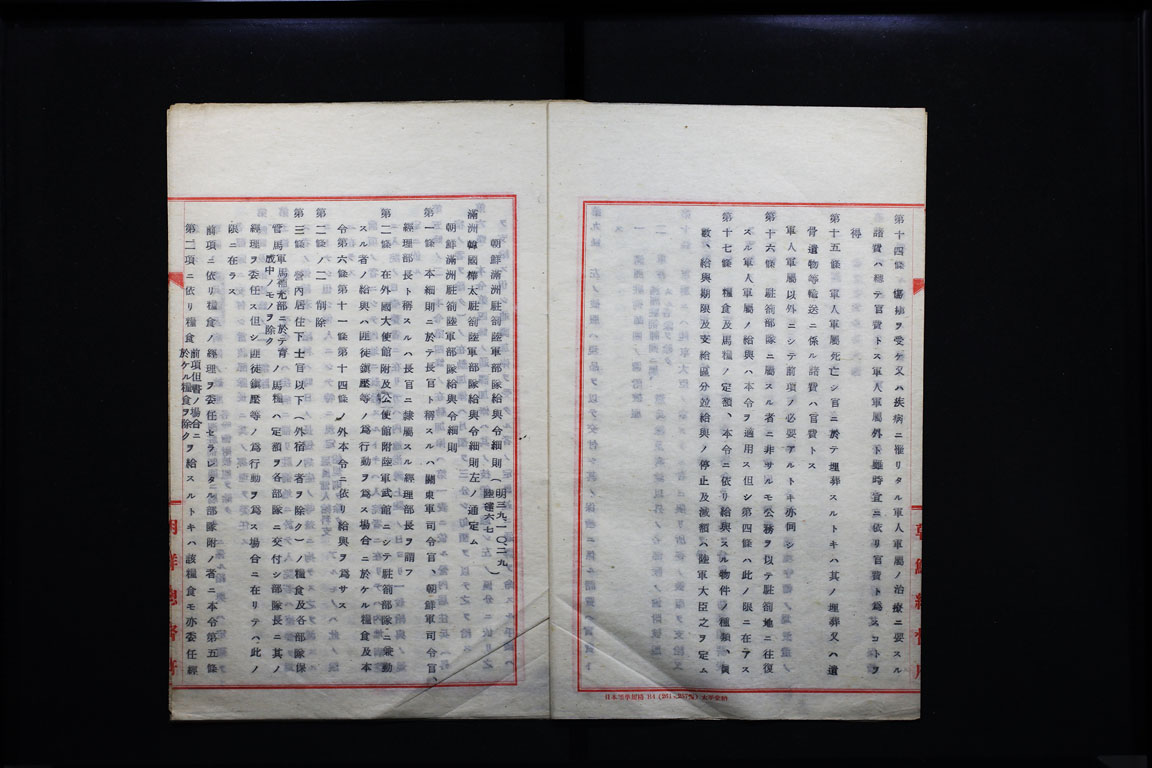 第十四條 傷痍ヲ受ケ又ハ疾病ニ罹リタル軍人軍屬ノ治療ニ要スル
諸費ハ總テ官費トス軍人軍屬外ト雖時宜ニ依リ官費ト爲スコトヲ
得
第十五條 軍人軍屬死亡シ官ニ於テ埋葬スルトキハ其ノ埋葬又ハ遺
骨遺物等輸送ニ係ル諸費ハ官費トス
軍人軍屬以外ニシテ前項ノ必要アルトキ亦同シ
第十六條 駐箚部隊ニ屬スル者ニ非サルモ公務ヲ以テ駐箚地ニ往復
スル軍人軍屬ノ給與ハ本令ヲ適用ス但シ第四條ハ此ノ限ニ在アス
第十七條 糧食及馬糧ノ定額、本令ニ依リ給與スル物件ノ種類、員
數、給與期限及支給區分竝給與ノ停止及減額ハ陸軍大臣之ヲ定ム
朝鮮總督府
日本標準規格 B4
朝鮮滿洲駐箚陸軍部隊給與令細則(明三九、一〇、二九 陸達六七)
滿洲韓國樺太駐箚陸軍部隊給與令細則左ノ通定ム
朝鮮滿洲駐箚陸軍部隊給與令細則
第一條 本細則ニ於テ長官ト稱スルハ關東軍司令官、朝鮮軍司令官、
經理部長ト稱スルハ長官ニ隷屬スル經理部長ヲ謂フ
第二條 在外國大使館附及公使館附陸軍武官ニシテ駐箚部隊ニ兼勤
スル者ノ給與ハ匪徒鎭壓等ノ爲行動ヲ爲ス場合ニ於ケル糧食及本
令第六條第十一條第十四條ノ外本令ニ依リ給與ヲ爲サス
第二條ノ二 削除
第三條 營內居住下士官以下(外宿ノ者ヲ除ク)ノ糧食及各部隊保
管馬軍馬補充部ニ於テ育成中ノモノヲ除クノ馬糧ハ定額ヲ各部隊ニ交付シ部隊長ニ其ノ
經理ヲ委任ス但シ匪徒鎭壓等ノ爲行動ヲ爲ス場合ニ在リテハ此ノ
限ニ在ラス
前項ニ依リ糧食ノ經理ヲ委任セラレタル部隊附ノ者ニ本令第五條
第二項ニ依リ糧食前項但書ノ場合ニ於ケル糧食ヲ除クヲ給スルトキハ該糧食モ亦委任經
朝鮮總督府